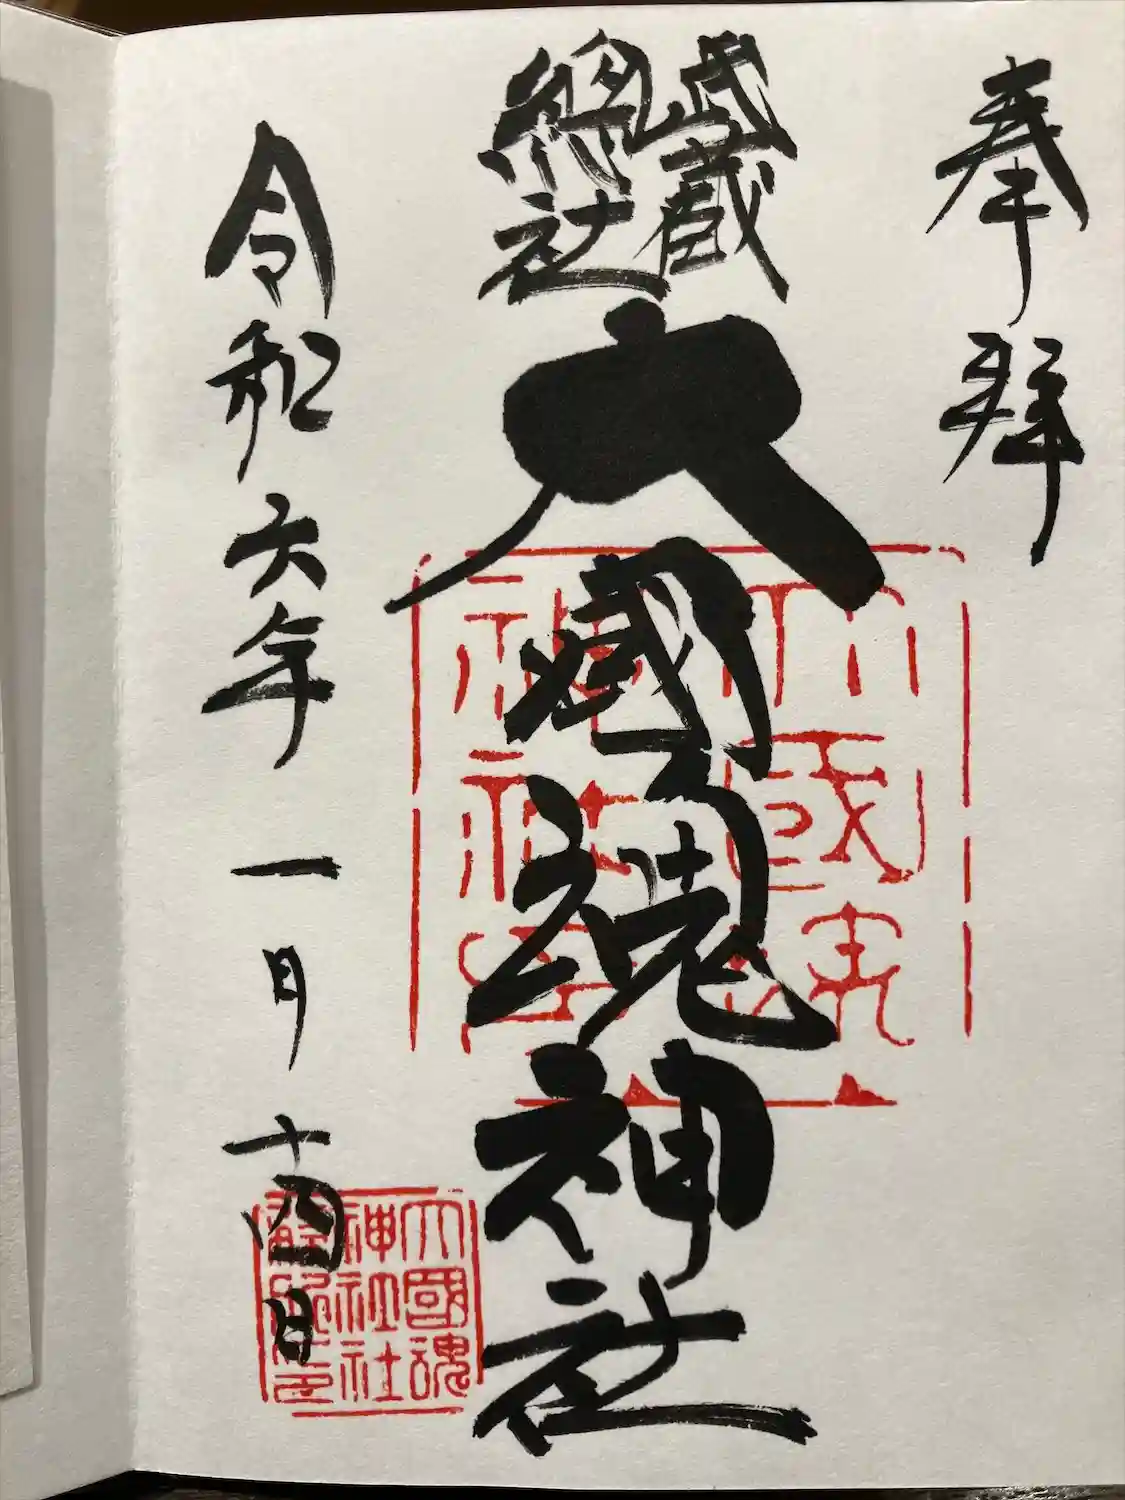 奉拝
武蔵
総社
大國魂神社
令和六年一月十四日
大國魂
神社
大國魂
神社社